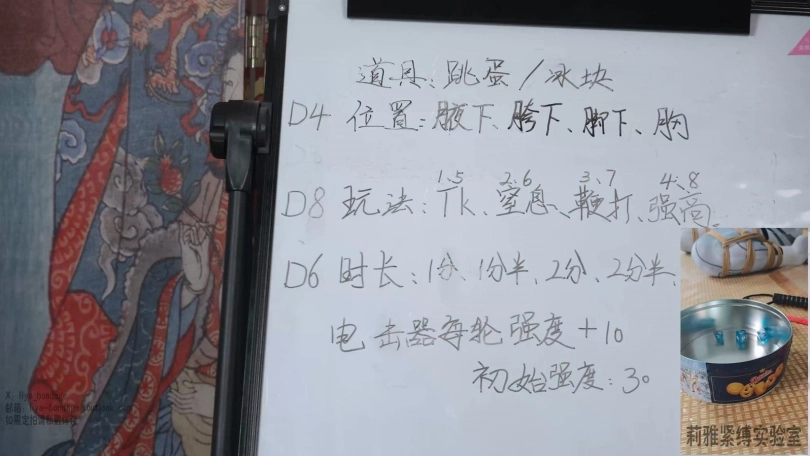 道具：跳蛋/冰块
D4 位置：腋下、胯下、脚下、胸
1、5 2、6 3、7 4、8
D8 玩法：Tk、窒息、鞭打、强高
D6 时长：1分、1分半、2分、2分半、
电击器每轮强度+10
初始强度：30
莉雅紧缚实验室